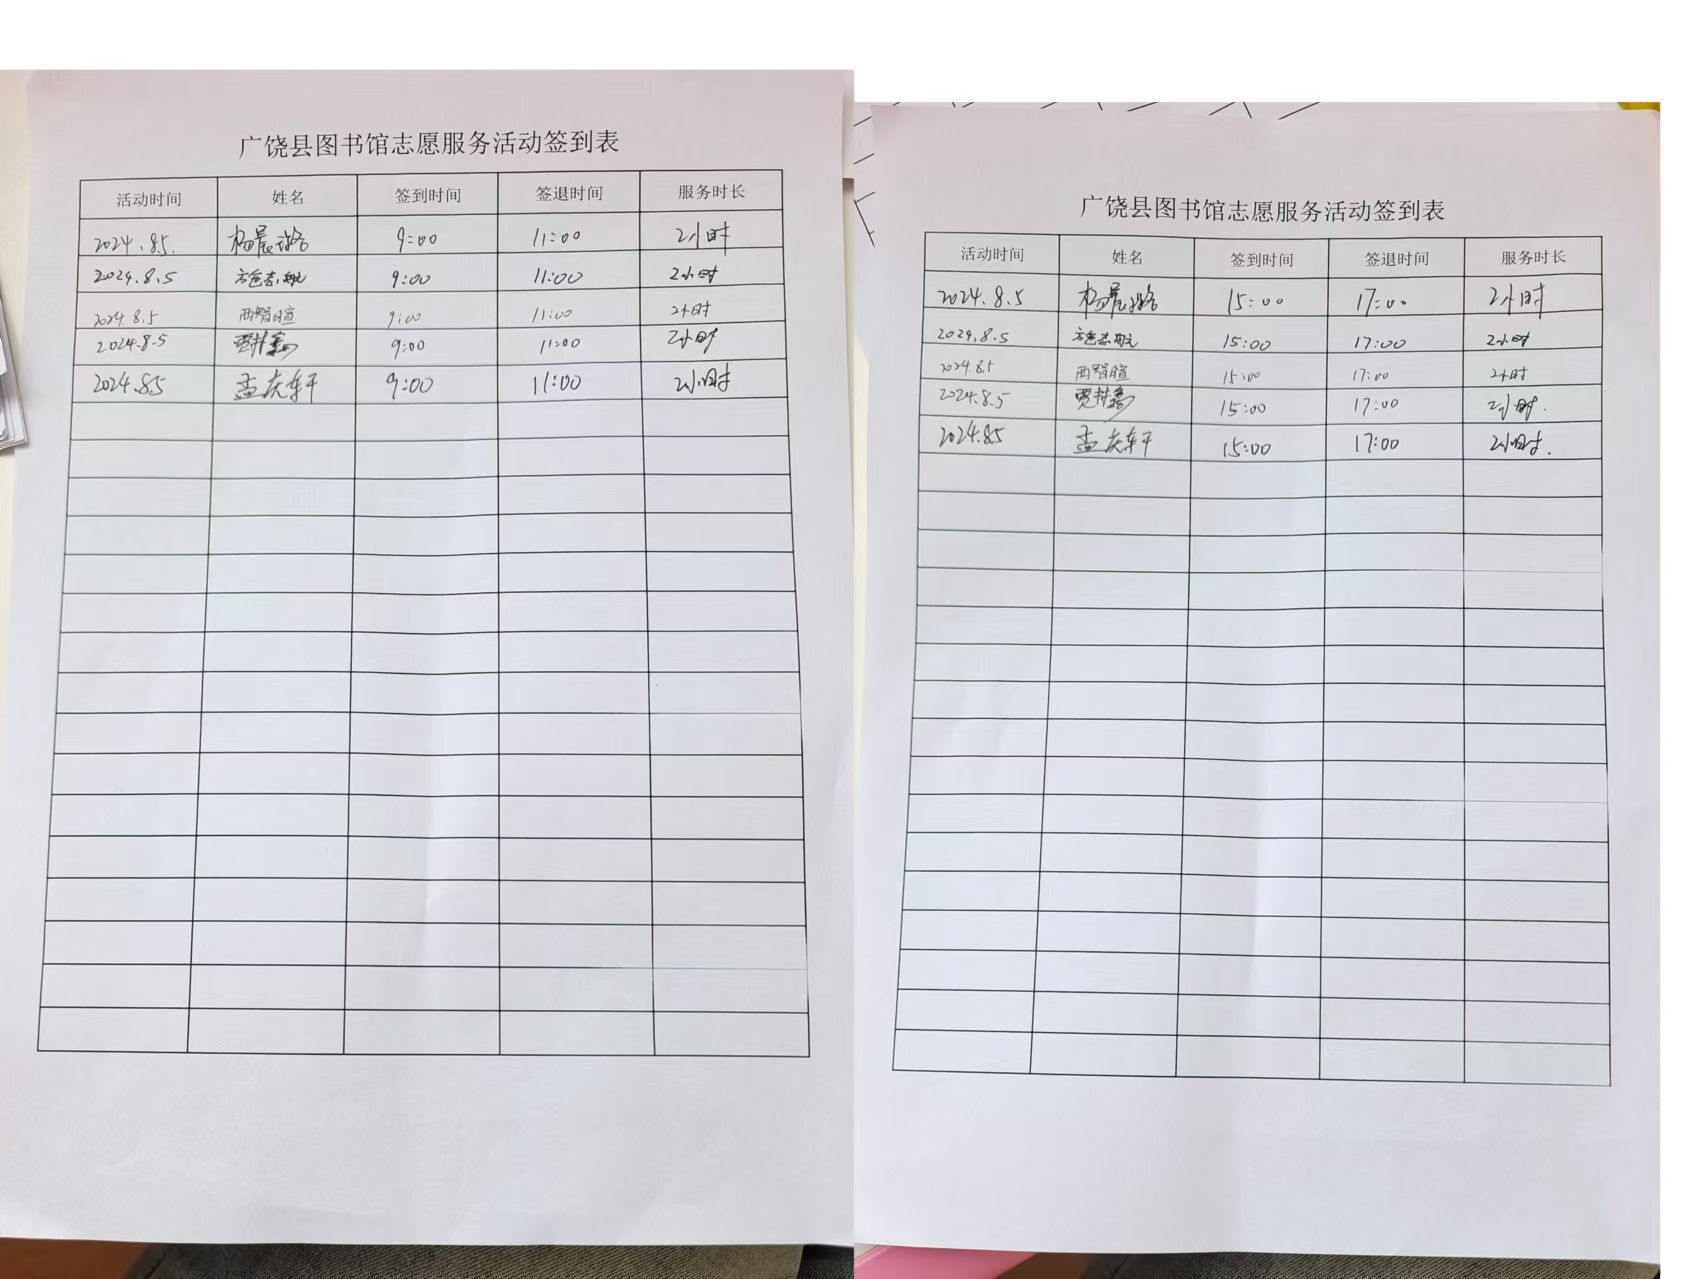 广饶县图书馆志愿服务活动签到表
活动时间 姓名 签到时间 签退时间 服务时长
2024.8.5. 杨晨璐 9:00 11:00 2小时
2024.8.5 9:00 11:00 2小时
2024.8.5 西智暄 9:00 11:00 2小时
2024.8.5 贾梓鑫 9:00 11:00 2小时
2024.8.5 孟庆轩 9:00 11:00 2小时
广饶县图书馆志愿服务活动签到表
活动时间 姓名 签到时间 签退时间 服务时长
2024.8.5 杨晨璐 15:00 17:00 2小时
2024.8.5 15:00 17:00 2小时
2024.8.5 西智暄 15:00 17:00 2小时
2024.8.5 贾梓鑫 15:00 17:00 2小时.
2024.8.5 孟庆轩 15:00 17:00 2小时.